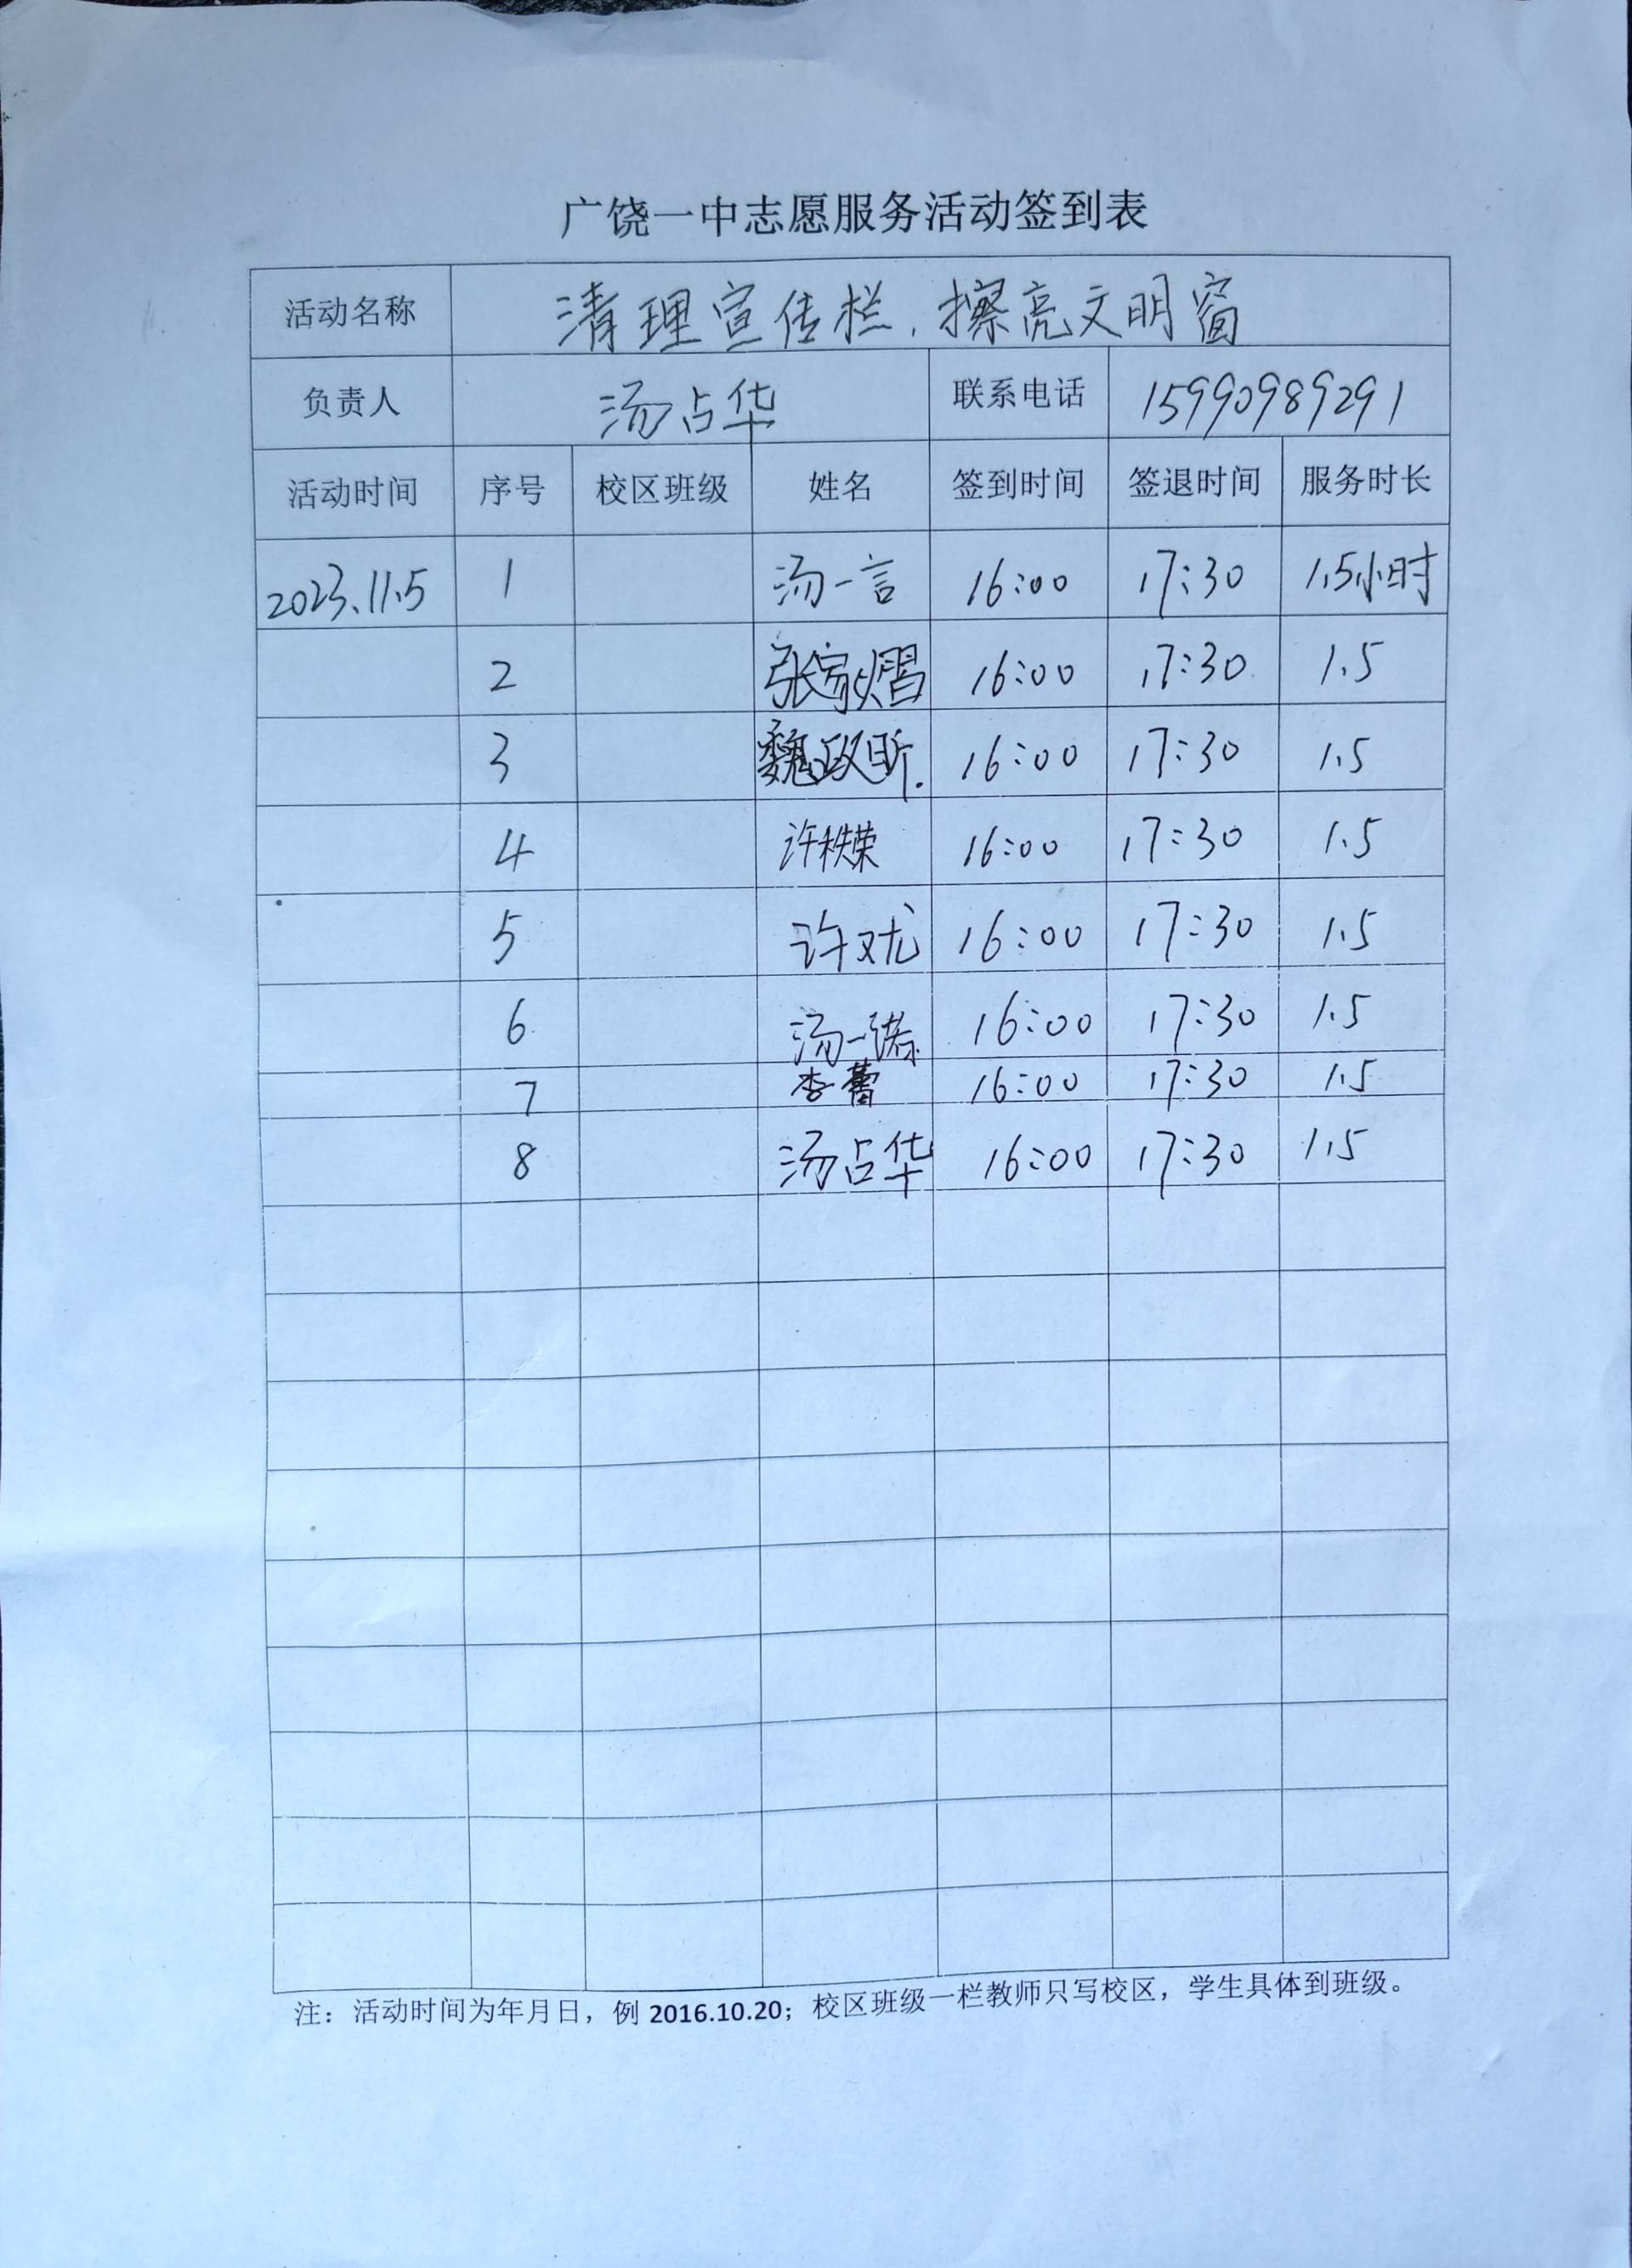 广饶一中志愿服务活动签到表
活动名称 清理宣传栏，擦亮文明窗
负责人 汤占华 联系电话 15990989291
活动时间 序号 校区班级 姓名 签到时间 签退时间 服务时长
2023.11.5 1 汤一言 16:00 17:30 1.5小时
2 张家熠 16:00 17:30 1.5
3 魏政昕. 16:00 17:30 1.5
4 许秩荣 16:00 17:30 1.5
5 许双尤 16:00 17:30 1.5
6 汤一诺 16:00 17:30 1.5
7 李蕾 16:00 17:30 1.5
8 汤占华 16:00 17:30 1.5
注：活动时间为年月日，例 2016.10.20；校区班级一栏教师只写校区，学生具体到班级。